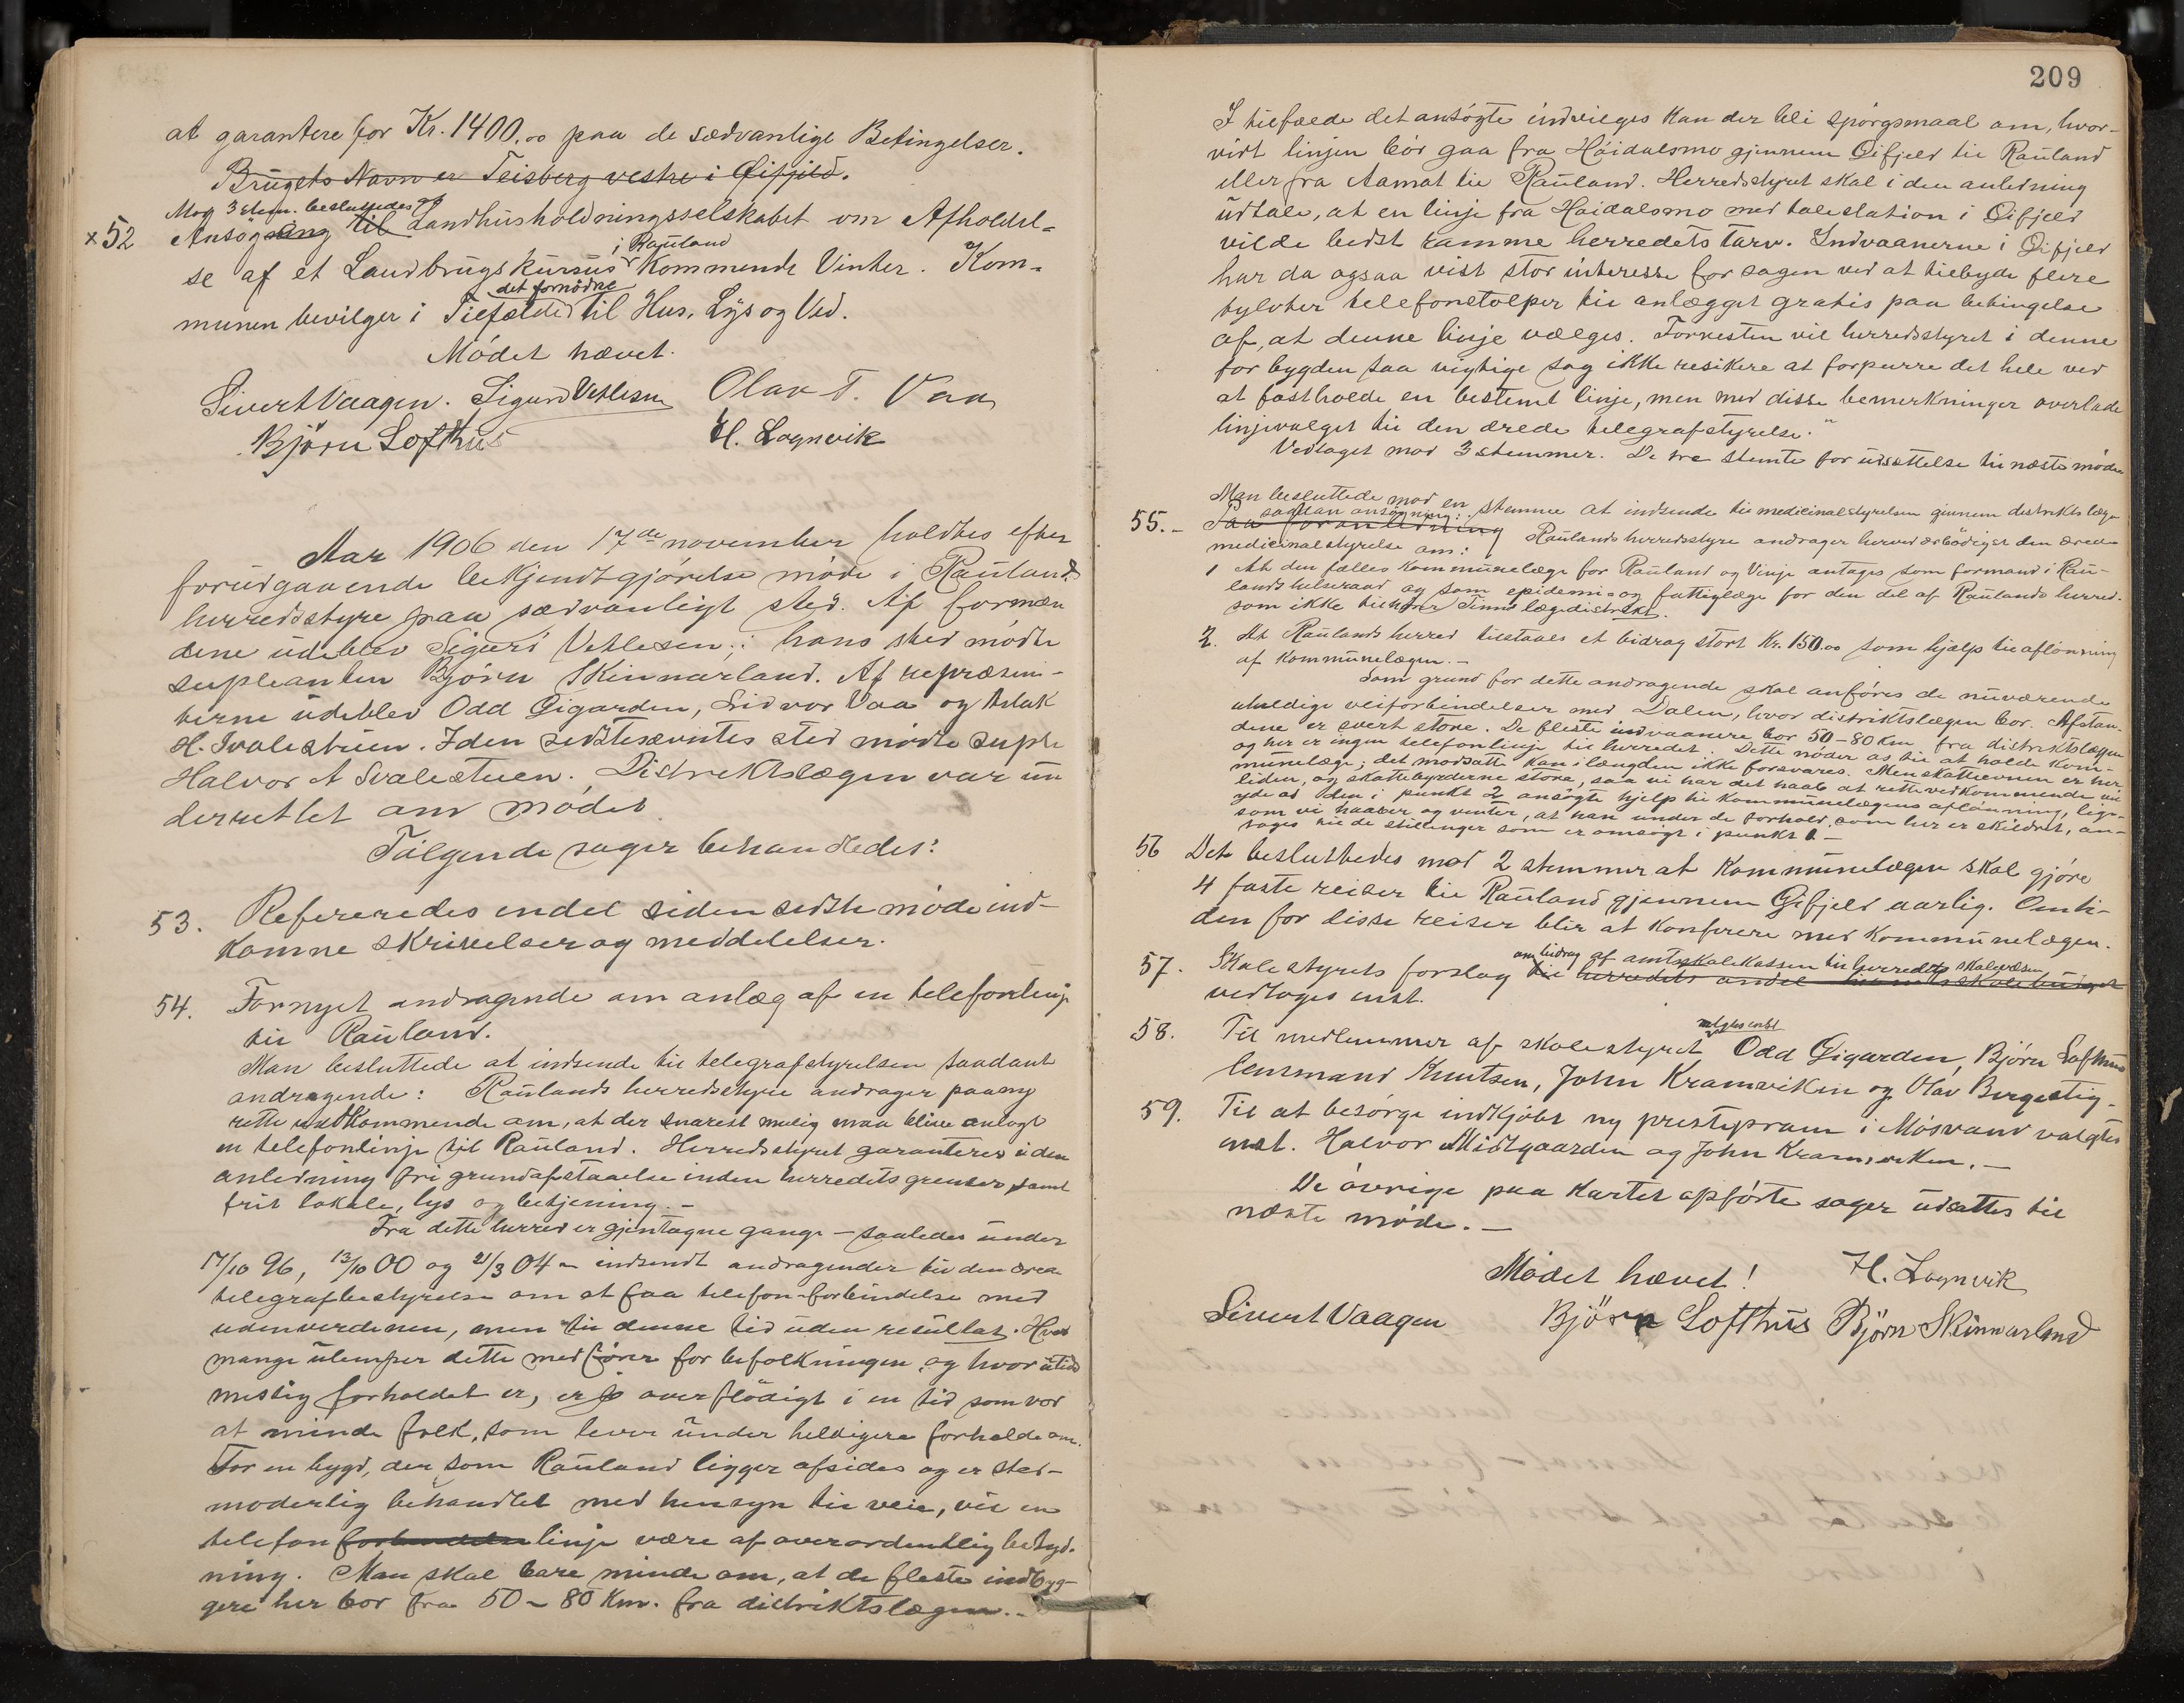 at garantere for Kr. 1400.00 paa de sædvanlige Betingelser.
Brugets Navn er Teisberg vestre i Øifjeld.
Mod 3 stem. besluttedes at
x52 Ansøgning til Landhusholdningsselskabet om Afholdel-
se af et Landbrugskursus i Rauland Kommende Vinter. Kom-
munen bevilger i Tilfælde det fornødne til Hus, Lys og Ved.
Mødet hævet.
Sivert Vaagen. Sigurd Vetlesen Olav T. Vaa
Bjørn Lofthus H. Lognvik
Aar 1906 den 17de november holdtes efter
forudgaaende bekjendtgjørelse møde i Raulands
herredsstyre paa sædvanligt sted. Af formæn
dene udeblev Sigurd Vetlesen; hans sted mødte
supleanten Bjørn Skinnarland. Af repræsen-
terne udeblev Odd Øigarden, Sidvor Vaa og Aslak
H. Svalestuen. I den sidstnævntes sted mødte suple
Halvor A Svalestuen. Distriktslægen var un
derrettet om mødet
Følgende sager behandledes:
53. Refereredes endel siden sidste møde ind-
komne skrivelser og meddelelser.
54. Fornyet andragende om anlæg af en telefonlinje
til Rauland.
Man besluttede at indsende til telegrafstyrelsen saadant
andragende: Raulands herredsstyre andrager paany
rette vedkommende om, at der snarest mulig maa blive anlagt
en telefonlinje til Rauland. Herredsstyret garanterer i den
anledning fri grundafstaaelse inden herredets grenser, samt
frit lokale, lys og betjening. –
Fra dette herred er gjentagne gange – saaledes under
17/10 96, 13/10 00 og 21/3 04 – indsendt andragender til den ærede
telegrafbestyrelse om at faa telefon-forbindelse med
udenverdenen, men til denne tid uden resultat. Hvor
mange ulemper dette medfører for befolkningen, og hvor utids
messig forholdet er, er overflødigt i en tid som vor
at minde folk, som lever under heldigere forholde om.
For en bygd, der som Rauland ligger afsides og er sted-
moderlig behandlet med hensyn til veie, vil en
telefonforbindelse linje være af overordentlig betyd-
ning. Man skal bare minde om, at de fleste indbyg-
gere her bor fra 50 – 80 Km. fra distriktslægen. –
209
I tilfælde det ansøgte indvilges kan der bli spørgsmaal om, hvor-
vidt linjen bør gaa fra Høidalsmo gjennem Øifjeld til Rauland
eller fra Aamot til Rauland. Herredsstyret skal i den anledning
udtale, at en linje fra Høidalsmo med talestation i Øifjeld
vilde bedst ramme herredets tarv. Indvaanerne i Øifjeld
har da ogsaa vist stor interesse for sagen ved at tilbyde flere
tylvter telefonstolper til anlægget gratis paa betingelse
af, at denne linje vælges. Forresten vil herredsstyret i denne
for bygden saa vigtige sag ikke resikere at forpurre det hele ved
at fastholde en bestemt linje, men med disse bemerkninger overlade
linjevalget til den ærede telegrafstyrelse."
Vedtaget mod 3 stemmer. De tre stemte for udsættelse til næste møde
Man besluttede mod en stemme at indsende til medicinalstyrelsen gjennem distriktslægen
saadan ansøgning:
55. – Paa foranledning Raulands herredsstyre andrager herved ærbødigst den ærede
medicinalstyrelse om:
1 At den fælles kommunelæge for Rauland og Vinje antages som formand i Rau-
lands helseraad og som epidemi- og fattiglæge for den del af Raulands herred.
som ikke tilhører Tinns lægedistrikt.
2. At Raulands herred tilstaaes et bidrag stort Kr. 150.00 som hjælp til aflønning
af kommunelægen. –
Som grund for dette andragende skal anføres de nuværende
uheldige veiforbindelser med Dalen, hvor distriktslægen bor. Afstan-
dene er svert store. De fleste indvaanere bor 50 – 80 Km fra distriktslægen
og her er ingen telefonlinje til herredet. Dette nøder os til at holde kom-
munelæge; det modsatte kan i længden ikke forsvares. Men skatteevnen er her
liden, og skattebyrderne store, saa vi har det haab at rette vedkommende vil
yde os den i punkt 2 ansøgte hjelp til kommunelægens aflønning, lige-
som vi haaber og venter, at han under de forhold, som her er skildret, an-
tages til de stillinger som er omsøgt i punkt 1. –
56 Det besluttedes mod 2 stemmer at kommunelægen skal gjøre
4 faste reiser til Rauland gjennem Øifjeld aarlig. Om ti-
den for disse reiser blir at konferere med kommunelægen.
57. Skolestyrets forslag om bidrag af amtsskolekassen til herredets skolevæsen
til herredets andel
vedtoges enst.
58. Til medlemmer af skolestyret valgtes enst Odd Øigarden, Bjørn Lofthus
lensmand Knutsen, John Kramviken og Olav Bergestig.
59. Til at besørge indkjøbt ny prestepram i Møsvand valgtes
enst. Halvor Midtgaarden og John Kramviken. –
De øvrige paa kartet opførte sager udsattes til
næste møde. –
Mødet hævet! H. Lognvik
Sivert Vaagen Bjørn Lofthus Bjørn Skinnarland